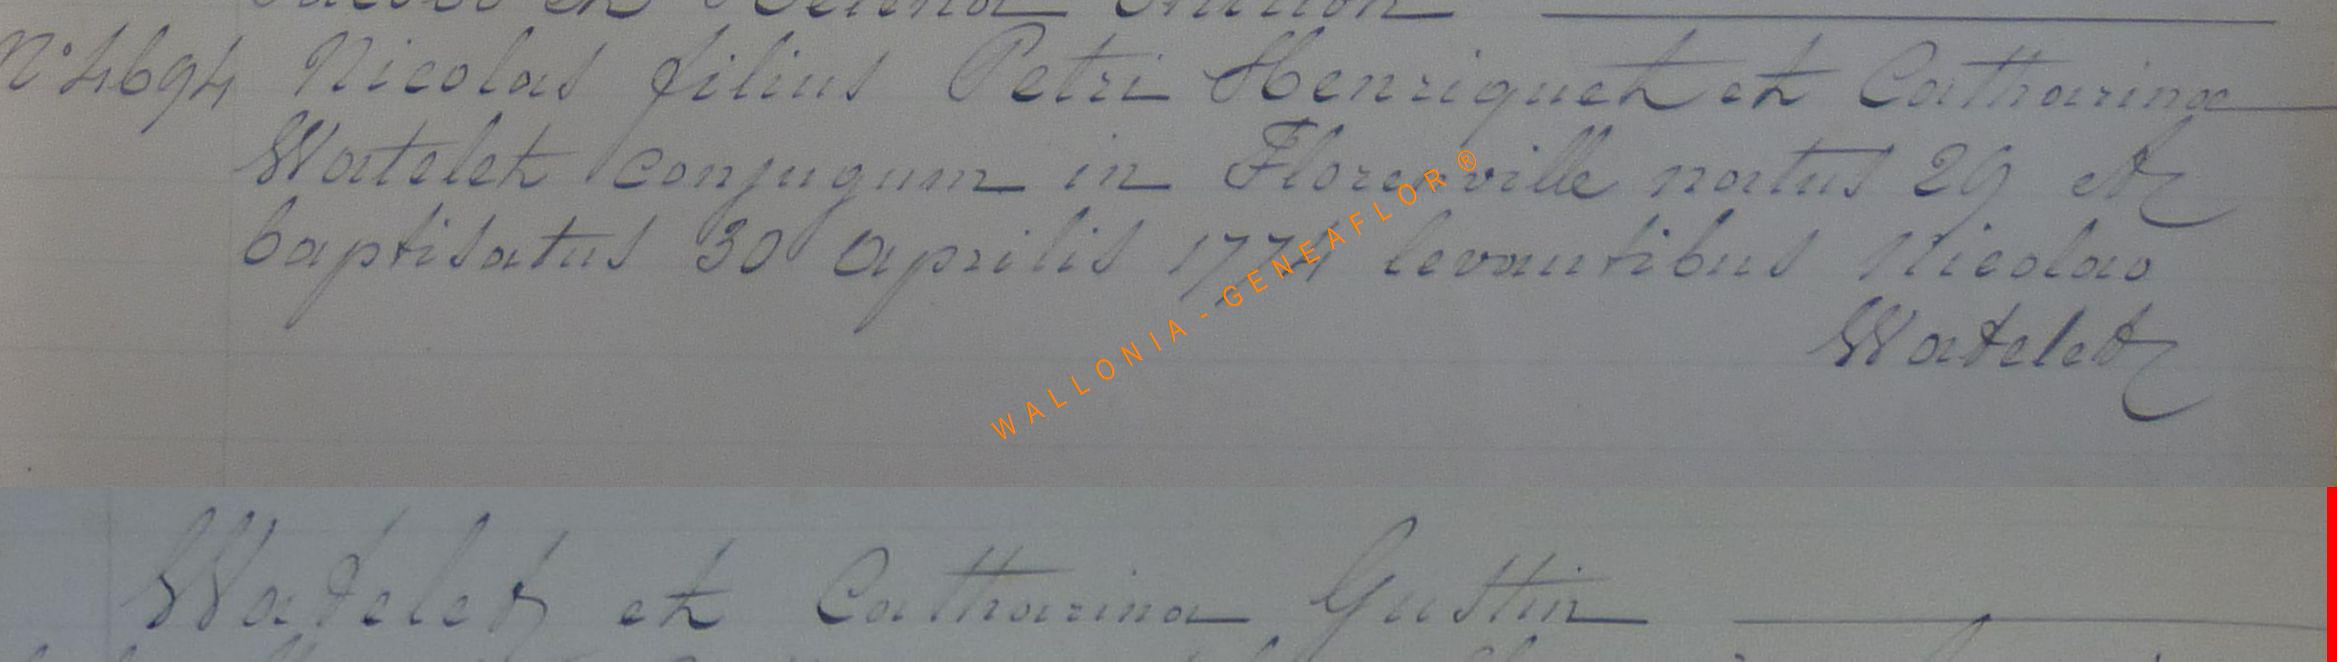 N° 4694 Nicolas filius Petri Henriquet et Catharinæ
Watelet conjugum in Florenville natus 29 et
baptisatus 30 aprilis 1774 levantibus Nicolao
Watelet
WALLONIA - GENEAFLOR®
Watelet et Catharina Gustin